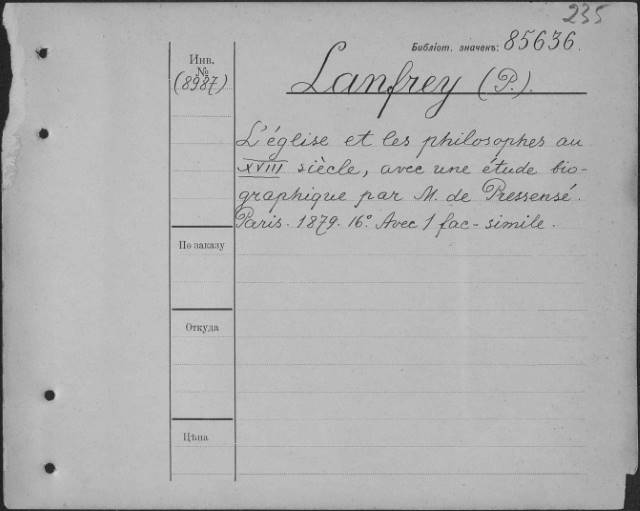 235
Библіот. значекъ: 85636.
Инв.
№
(8987)
Lanfrey (P.).
L'église et les philosophes au
XVIII siècle, avec une étude bio-
graphique par M. de Pressensé.
Paris. 1879. 16°. Avec 1 fac-simile.
По заказу
Откуда
Цѣна